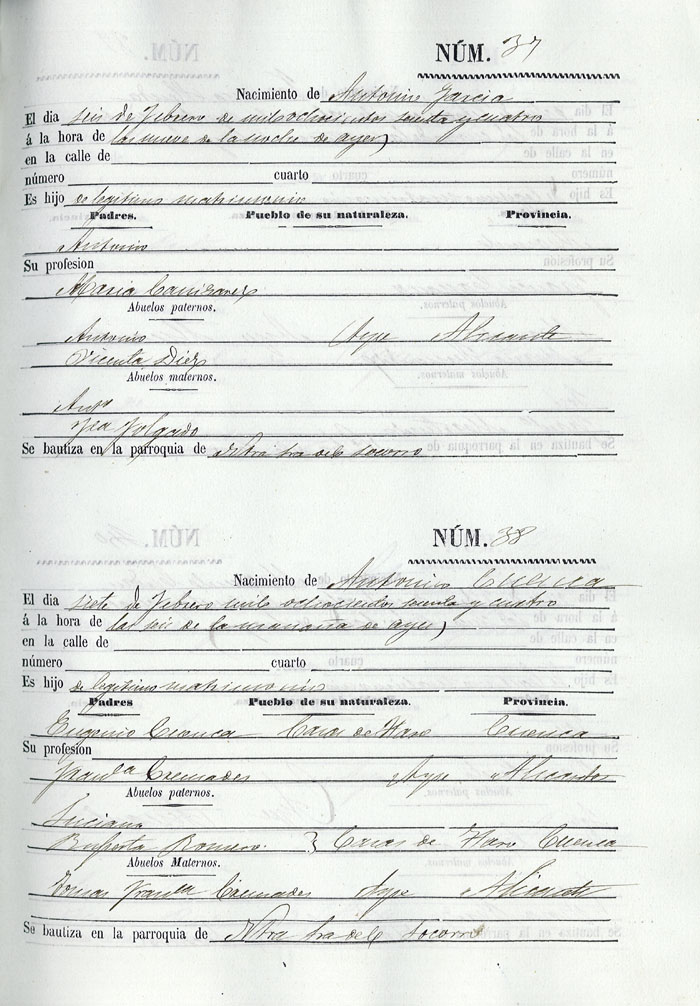 NÚM. 37
Nacimiento de Antonio Garcia
El dia seis de Febrero de mil ochocientos sesenta y cuatro
á la hora de las nueve de la noche de ayer
en la calle de
número cuarto
Es hijo de legitimo matrimonio
Padres. Pueblo de su naturaleza. Provincia.
Antonio
Su profesion
Maria Cañizares
Abuelos paternos.
Antonio Aspe Alicante
Vicenta Diez
Abuelos maternos.
Anto
Fca Folgado
Se bautiza en la parroquia de Ntra Sra del Socorro
NÚM. 38
Nacimiento de Antonio Cuenca
El dia siete de Febrero mil ochocientos sesenta y cuatro
á la hora de las seis de la mañana de ayer
en la calle de
número cuarto
Es hijo de legitimo matrimonio
Padres Pueblo de su naturaleza. Provincia.
Eugenio Cuenca Casas de Haro Cuenca
Su profesion
Cremades Aspe Alicante
Abuelos paternos.
Luciano
Ruperta Romero } Casas de Haro Cuenca
Abuelos Maternos.
Tomas Cremades Aspe Alicante
Se bautiza en la parroquia de Ntra Sra del Socorro